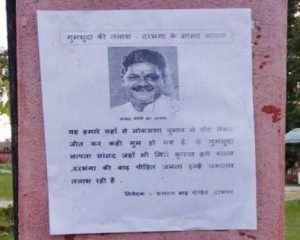 गुमशुदा की तलाश - दरभंगा के सांसद लापता
सांसद कीर्ति झा आजाद
यह हमारे यहाँ से लोकसभा चुनाव मे वोट लेकर
जीत कर कही गुम हो गए है. ये गुमशुदा
लापता सांसद जहाँ भी मिले कृपया हमे बताए
,दरभंगा की बाढ़ पीड़ित जनता इन्हे लगातार
तलाश रही है .
निवेदक :- समस्त बाढ़ पीड़ित ,दरभंगा